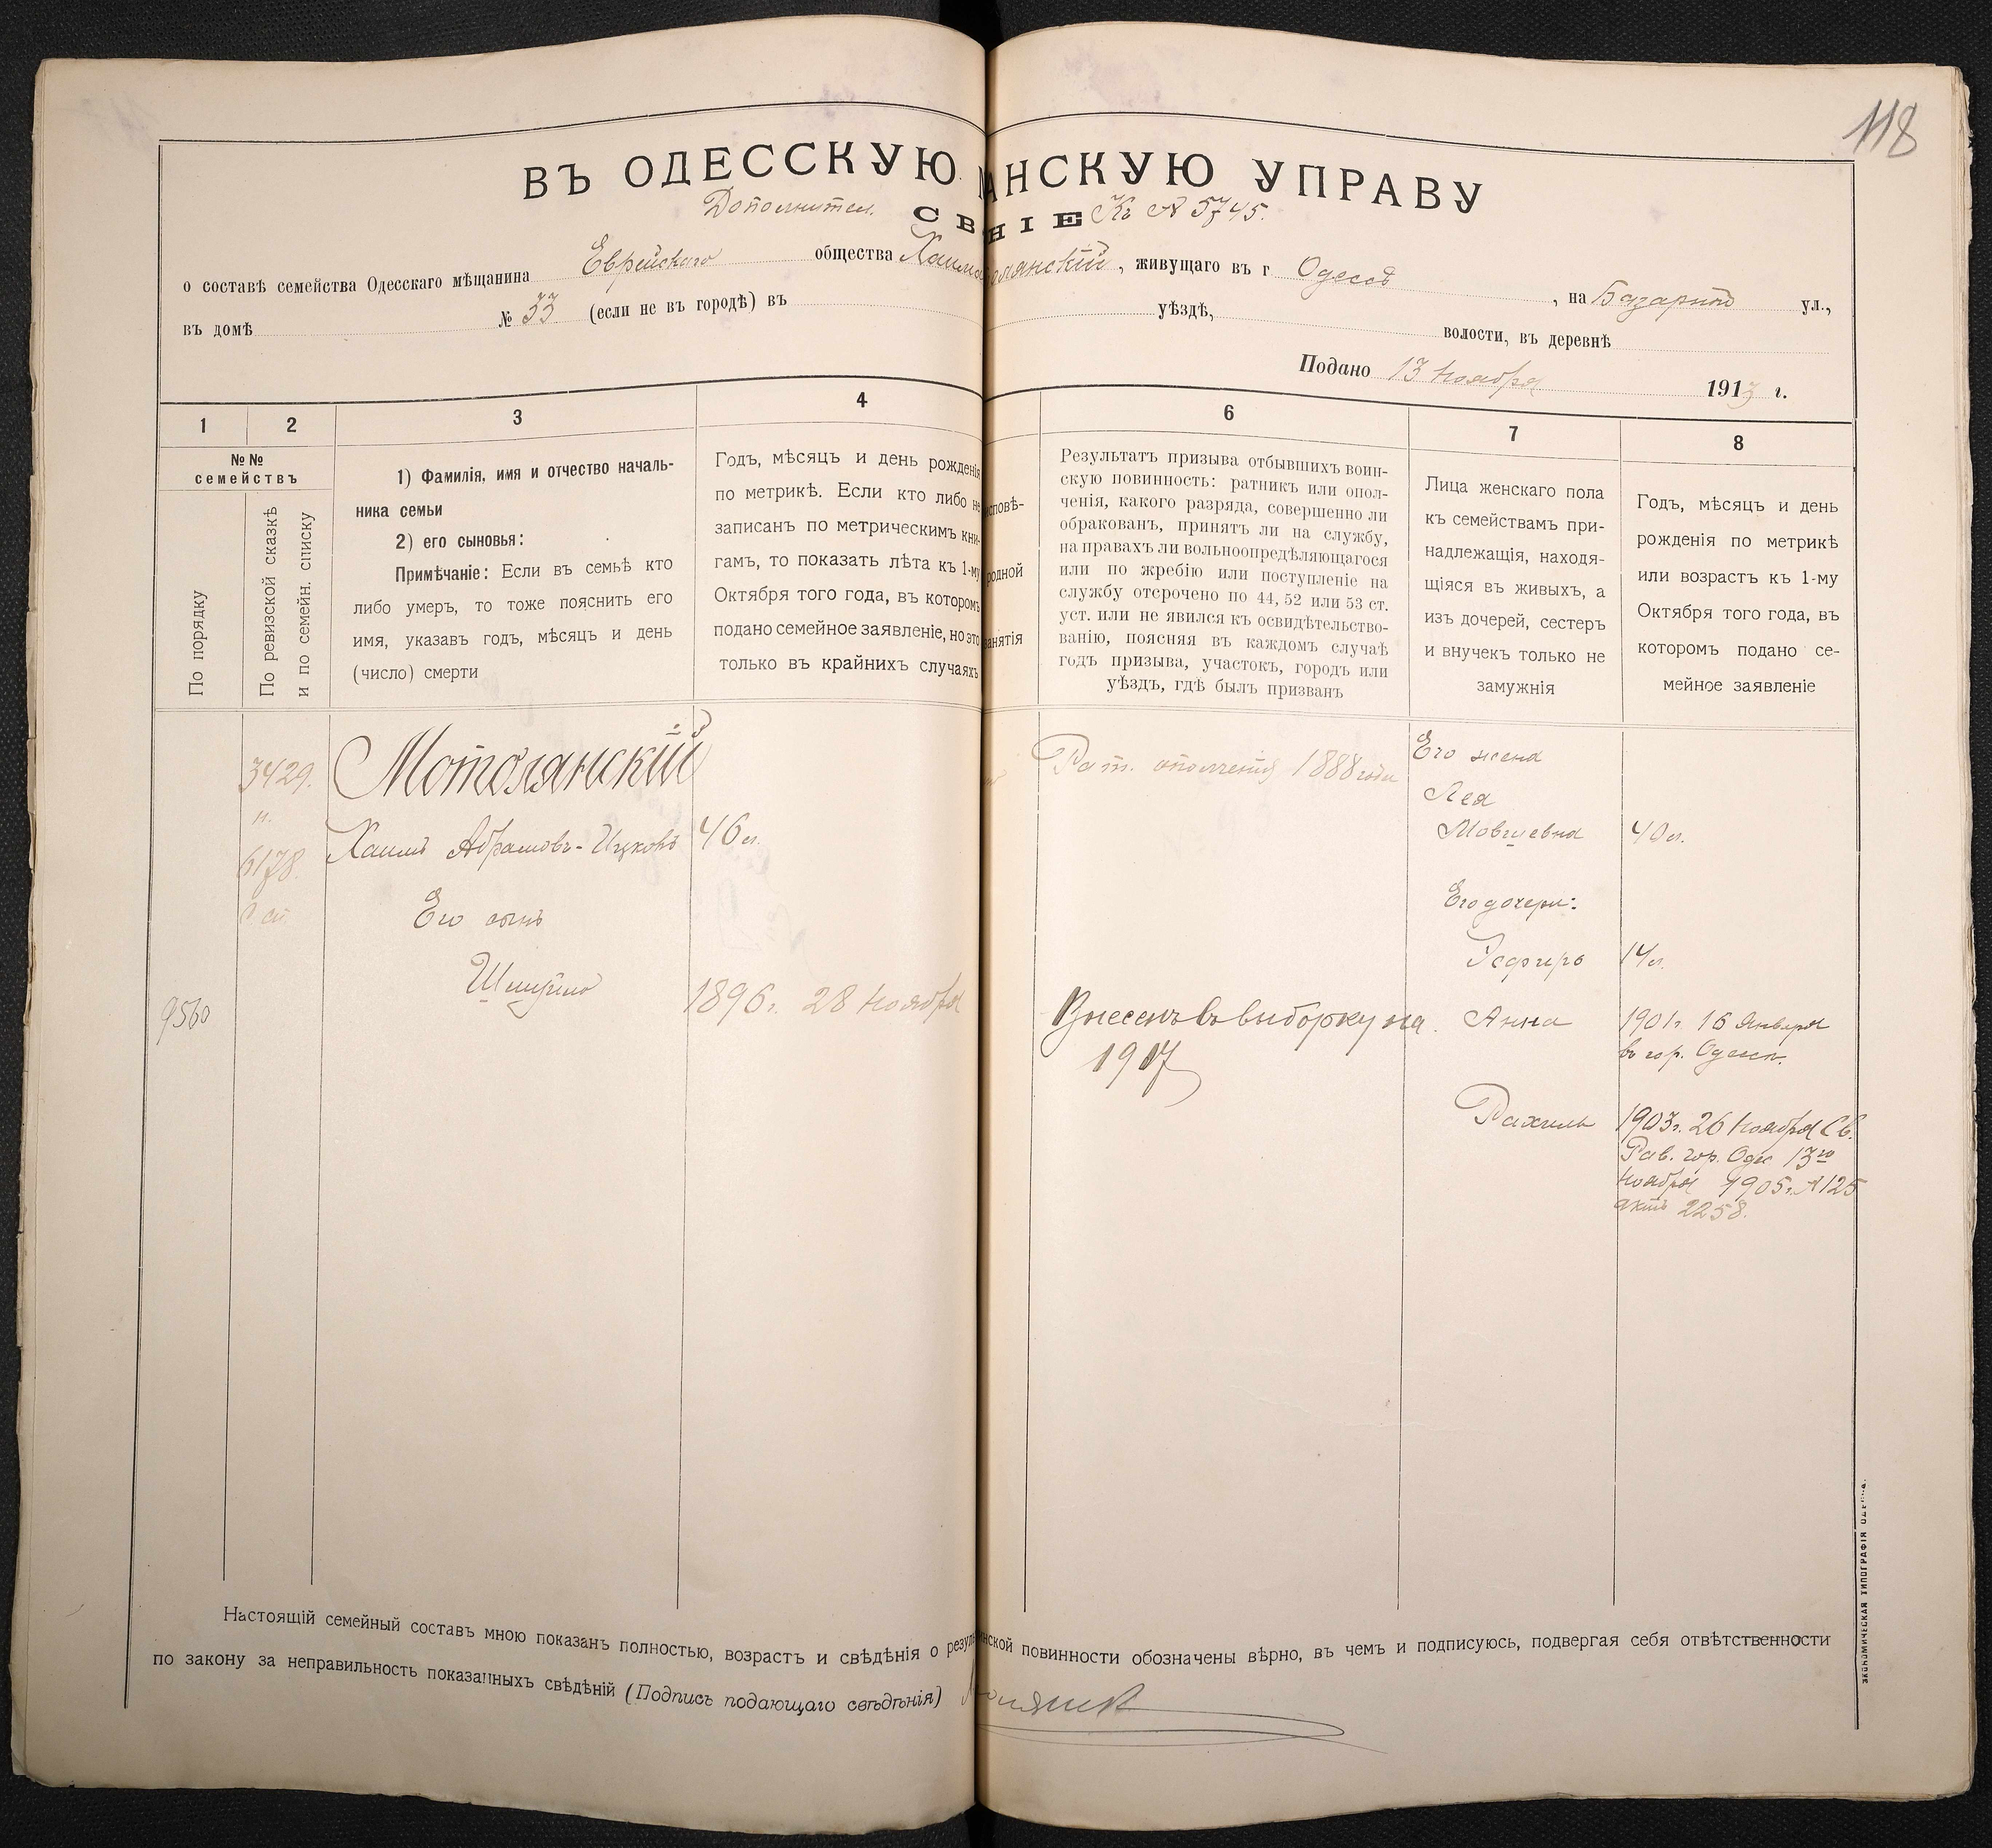 118
ВЪ ОДЕССКУЮ АНСКУЮ УПРАВУ
Дополнител. СВ НІЕ Къ № 5745.
о составѣ семейства Одесскаго мѣщанина Еврейскаго общества Хаима олянскій, живущаго въ г Одессѣ, на Базарной ул.,
въ домѣ № 33 (если не въ городѣ) въ уѣздѣ, волости, въ деревнѣ
Подано 13 Ноября 1913 г.
1 2 3 4 6 7 8
№№
семействъ
По порядку
По ревизской сказкѣ
и по семейн. списку
1) Фамилія, имя и отчество началь-
ника семьи
2) его сыновья:
Примѣчаніе: Если въ семьѣ кто
либо умеръ, то тоже пояснить его
имя, указавъ годъ, мѣсяцъ и день
(число) смерти
Годъ, мѣсяцъ и день рожденія
по метрикѣ. Если кто либо не
записанъ по метрическимъ кни-
гамъ, то показать лѣта къ 1-му
Октября того года, въ которомъ
подано семейное заявленіе, но это
только въ крайнихъ случаяхъ
исповѣ-
родной
занятія
Результатъ призыва отбывшихъ воин-
скую повинность: ратникъ или опол-
ченія, какого разряда, совершенно ли
обракованъ, принятъ ли на службу,
на правахъ ли вольноопредѣляющагося
или по жребію или поступленіе на
службу отсрочено по 44, 52 или 53 ст.
уст. или не явился къ освидѣтельство-
ванію, поясняя въ каждомъ случаѣ
годъ призыва, участокъ, городъ или
уѣздъ, гдѣ былъ призванъ
Лица женскаго пола
къ семействамъ при-
надлежащія, находя-
щіяся въ живыхъ, а
изъ дочерей, сестеръ
и внучекъ только не
замужнія
Годъ, мѣсяцъ и день
рожденія по метрикѣ
или возрастъ къ 1-му
Октября того года, въ
которомъ подано се-
мейное заявленіе
3429.
6178.
Мотолянскій
Хаимъ Абрамовъ-Ицковъ 46 л.
Рат. ополченія 1888 года
Его жена
Лея
Мовшевна 40 л.
Его сынъ
9560 Шмуль 1896 г. 28 Ноября
Внесенъ въ выборку на
1917
Его дочери:
Эсфирь 14 л.
Анна 1901 г. 16 Января
въ гор. Одессѣ.
Рахиль 1903 г. 26 Ноября Св.
Рав. гор. Одес 13го
Ноября 1905 г. № 125
актъ 2258.
Настоящій семейный составъ мною показанъ полностью, возрастъ и свѣдѣнія о резуль инской повинности обозначены вѣрно, въ чемъ и подписуюсь, подвергая себя отвѣтственности
по закону за неправильность показанныхъ свѣдѣній (Подпись подающаго свѣдѣнія)
ЭКОНОМИЧЕСКАЯ ТИПОГРАФІЯ